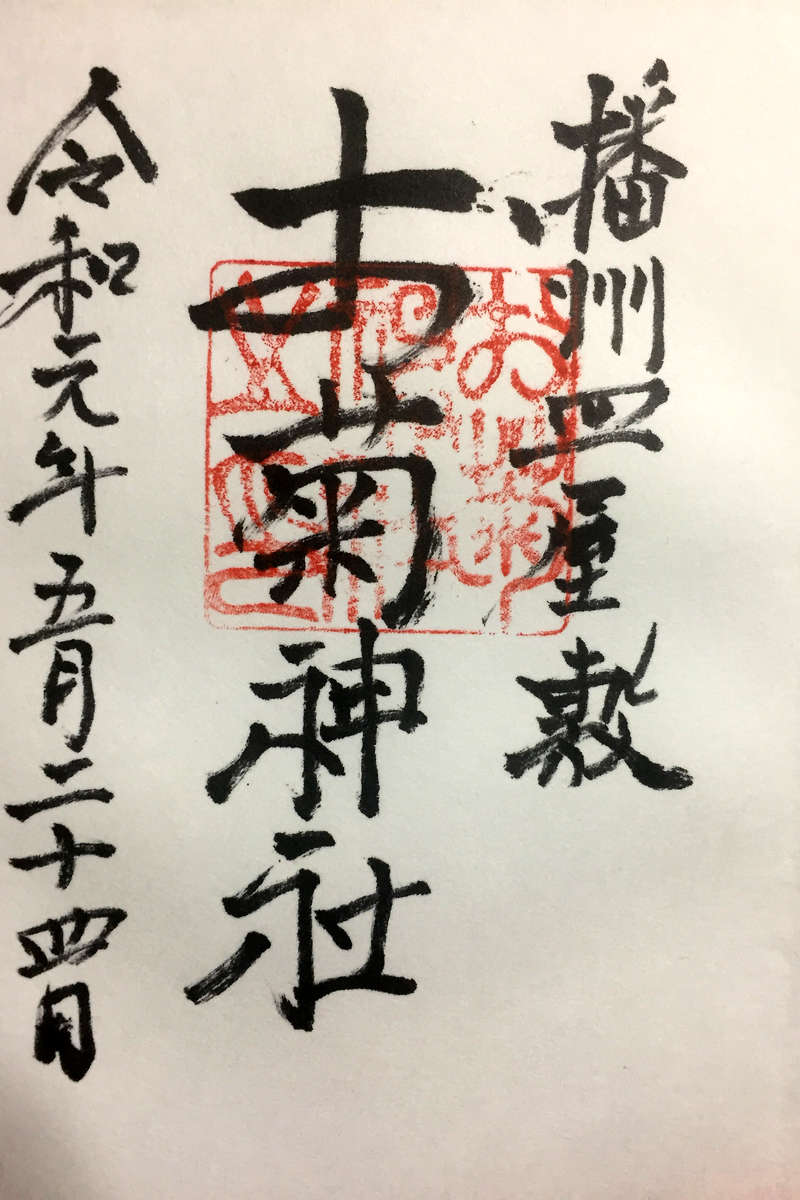 播州皿屋敷
お菊神社
令和元年五月二十四日